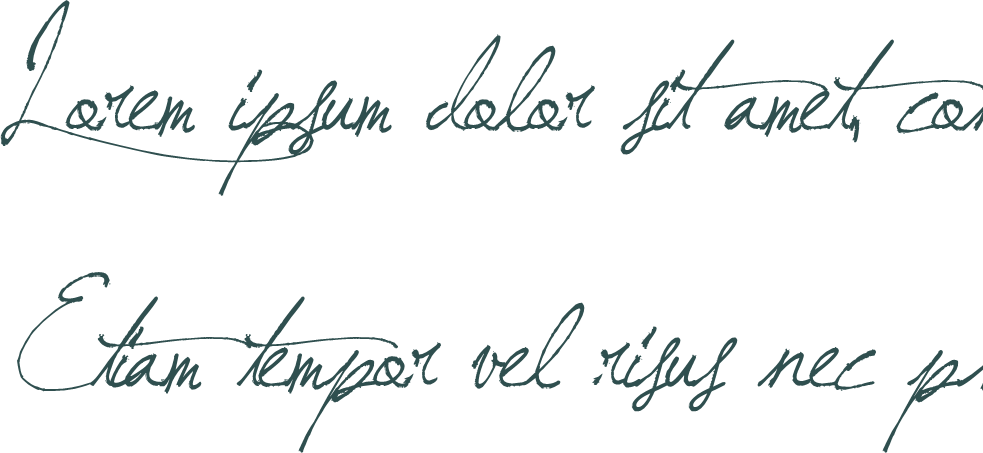 Lorem ipsum dolor sit amet, con
Etiam tempor vel risus nec pr